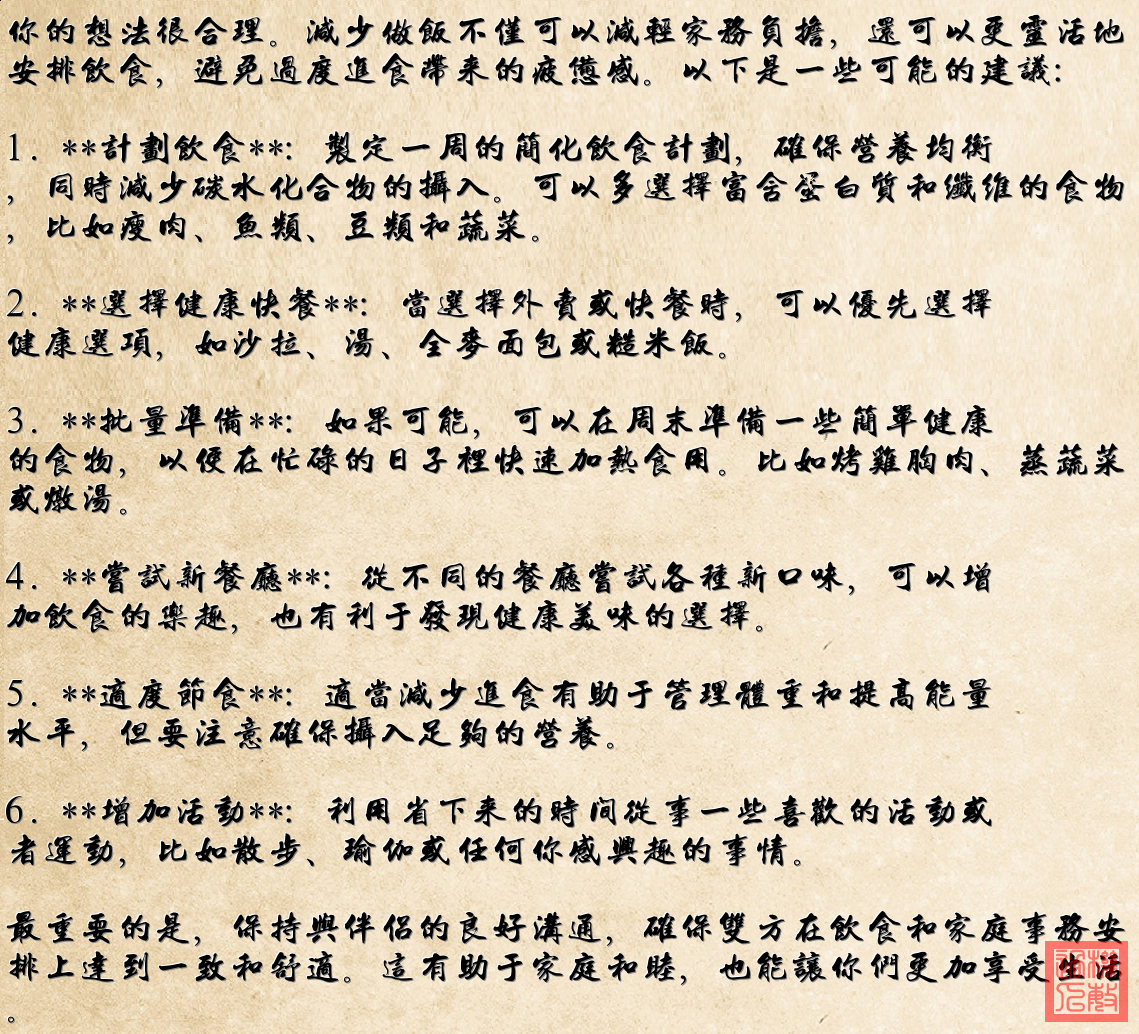 你的想法很合理。減少做飯不僅可以減輕家務負擔，還可以更靈活地
安排飲食，避免過度進食帶來的疲憊感。以下是一些可能的建議：
1. **計劃飲食**：製定一周的簡化飲食計劃，確保營養均衡
，同時減少碳水化合物的攝入。可以多選擇富含蛋白質和纖維的食物
，比如瘦肉、魚類、豆類和蔬菜。
2. **選擇健康快餐**：當選擇外賣或快餐時，可以優先選擇
健康選項，如沙拉、湯、全麥面包或糙米飯。
3. **批量準備**：如果可能，可以在周末準備一些簡單健康
的食物，以便在忙碌的日子裡快速加熱食用。比如烤雞胸肉、蒸蔬菜
或燉湯。
4. **嘗試新餐廳**：從不同的餐廳嘗試各種新口味，可以增
加飲食的樂趣，也有利于發現健康美味的選擇。
5. **適度節食**：適當減少進食有助于管理體重和提高能量
水平，但要注意確保攝入足夠的營養。
6. **增加活動**：利用省下来的時间從事一些喜歡的活動或
者運動，比如散步、瑜伽或任何你感興趣的事情。
最重要的是，保持與伴侶的良好溝通，確保雙方在飲食和家庭事務安
排上達到一致和舒適。這有助于家庭和睦，也能讓你們更加享受生活
。